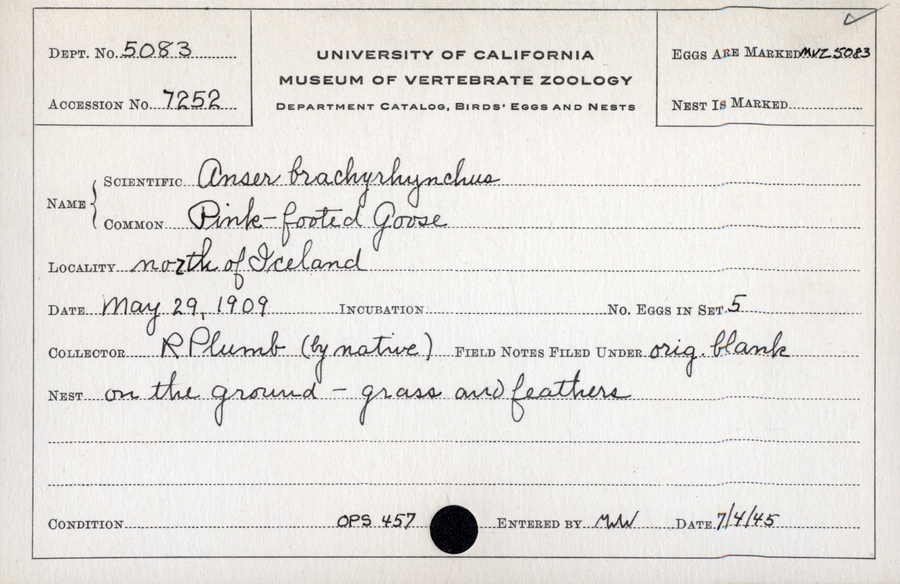 Dept. No. 5083
Accession No. 7252
UNIVERSITY OF CALIFORNIA
MUSEUM OF VERTEBRATE ZOOLOGY
Department Catalog, Birds' Eggs and Nests
Eggs Are Marked MVZ 5083
Nest Is Marked
Name { Scientific Anser brachyrhynchus
Common Pink-footed Goose
Locality north of Iceland
Date May 29, 1909 Incubation No. Eggs in Set 5
Collector R Plumb (by native) Field Notes Filed Under orig. blank
Nest on the ground - grass and feathers
Condition OPS 457 Entered by MW Date 7/4/45